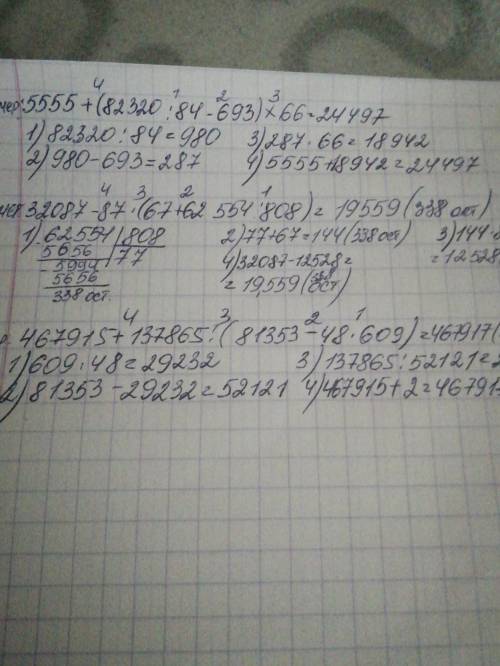 4 1 2 3
5555+(82320:84-693)×66=24497
1) 82320:84=980 3) 287·66=18942
2) 980-693=287 4) 5555+18942=24497
4 3 2 1
32087-87·(67+62 554:808)=19559(338 ост)
1) 62554|808 2) 77+67=144(338 ост) 3) 144
5656 77 4) 32087-12528= =12528
5994 =19,559(338 ост)
5656
338 ост.
4 3 2 1
467915+137865:(81353-48·609)=467917(
1) 609·48=29232 3) 137865:52121=2
2) 81353-29232=52121 4) 467915+2=46791